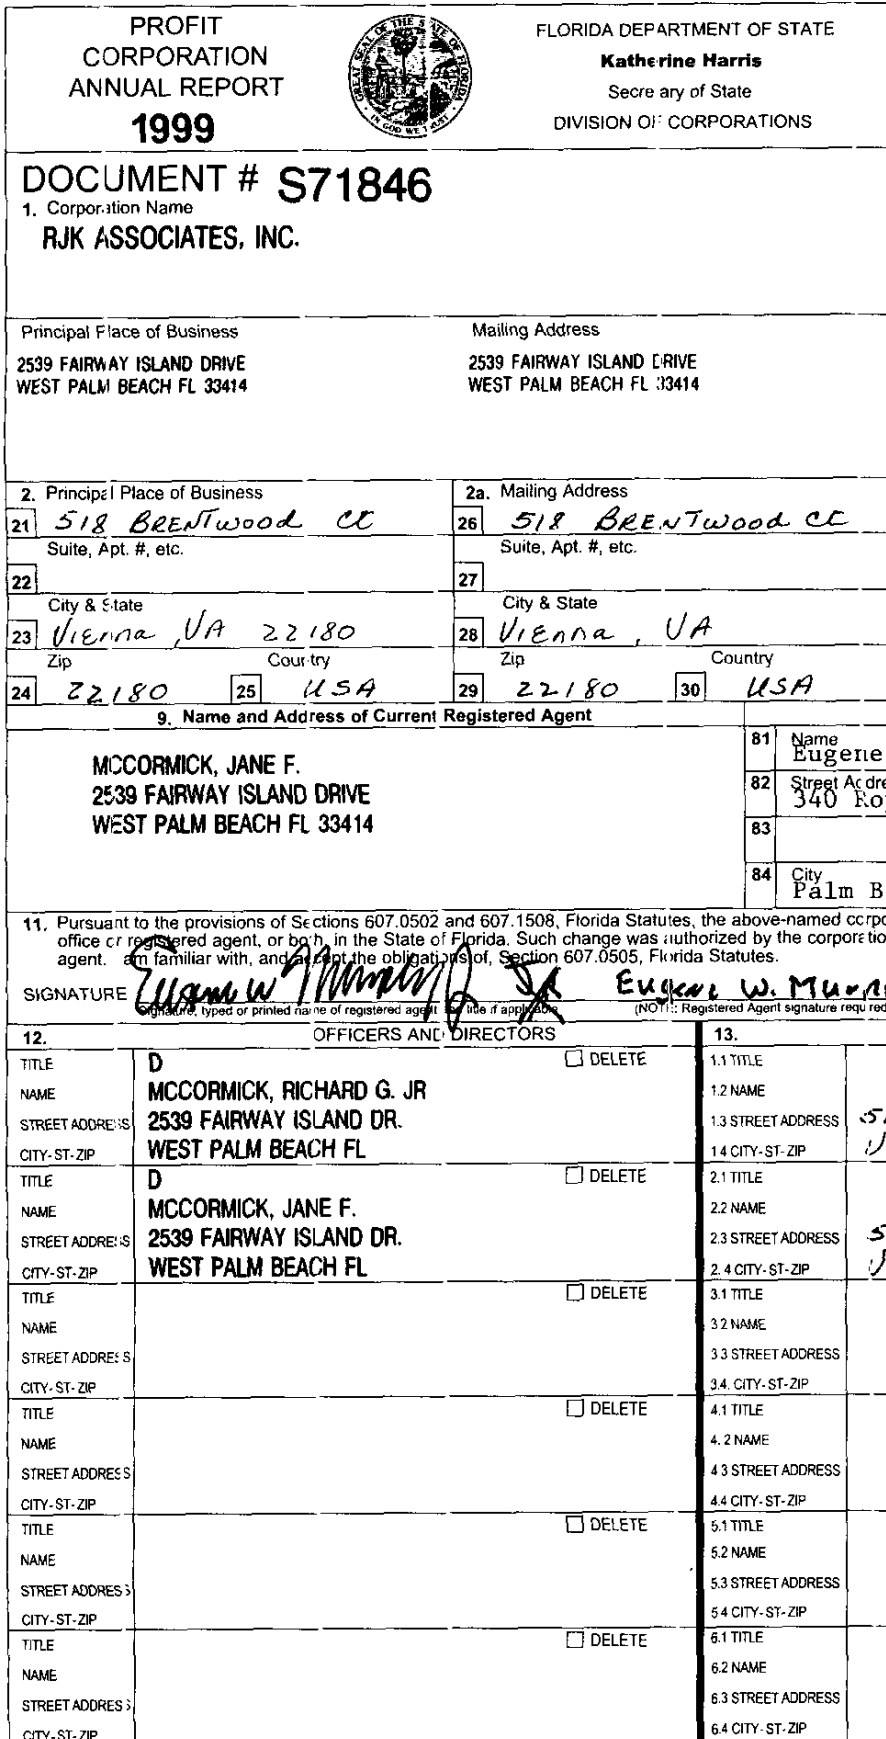 PROFIT
CORPORATION
ANNUAL REPORT
1999
GREAT SEAL OF THE STATE OF FLORIDA
IN GOD WE TRUST
FLORIDA DEPARTMENT OF STATE
Katherine Harris
Secre ary of State
DIVISION OF CORPORATIONS
DOCUMENT # S71846
1. Corporation Name
RJK ASSOCIATES, INC.
Principal Place of Business
2539 FAIRWAY ISLAND DRIVE
WEST PALM BEACH FL 33414
Mailing Address
2539 FAIRWAY ISLAND DRIVE
WEST PALM BEACH FL 33414
2. Principal Place of Business
21 518 BRENTwood Ct
Suite, Apt. #, etc.
22
City & State
23 Vienna, VA 22180
Zip Country
24 22180 25 USA
2a. Mailing Address
26 518 BRENTwood Ct
Suite, Apt. #, etc.
27
City & State
28 Vienna, VA
Zip Country
29 22180 30 USA
9. Name and Address of Current Registered Agent
MCCORMICK, JANE F.
2539 FAIRWAY ISLAND DRIVE
WEST PALM BEACH FL 33414
81 Name
Eugene
82 Street Addre
340 Ro
83
84 City
Palm B
11. Pursuant to the provisions of Sections 607.0502 and 607.1508, Florida Statutes, the above-named corpo
office or registered agent, or both, in the State of Florida. Such change was authorized by the corporatio
agent. am familiar with, and accept the obligations of, Section 607.0505, Florida Statutes.
SIGNATURE Eugene W. Murphy Jr Eugene W. Murp
Signature, typed or printed name of registered agent title if applicable (NOTE: Registered Agent signature required
12. OFFICERS AND DIRECTORS 13.
TITLE D DELETE
NAME MCCORMICK, RICHARD G. JR
STREET ADDRESS 2539 FAIRWAY ISLAND DR.
CITY-ST-ZIP WEST PALM BEACH FL
1.1 TITLE
1.2 NAME
1.3 STREET ADDRESS 5
1 4 CITY-ST-ZIP V
TITLE D DELETE
NAME MCCORMICK, JANE F.
STREET ADDRESS 2539 FAIRWAY ISLAND DR.
CITY-ST-ZIP WEST PALM BEACH FL
2.1 TITLE
2.2 NAME
2.3 STREET ADDRESS 5
2. 4 CITY-ST-ZIP V
TITLE DELETE
NAME
STREET ADDRESS
CITY-ST-ZIP
3.1 TITLE
3 2 NAME
3 3 STREET ADDRESS
3.4. CITY-ST-ZIP
TITLE DELETE
NAME
STREET ADDRESS
CITY-ST-ZIP
4.1 TITLE
4. 2 NAME
4 3 STREET ADDRESS
4.4 CITY-ST-ZIP
TITLE DELETE
NAME
STREET ADDRESS
CITY-ST-ZIP
5.1 TITLE
5.2 NAME
5.3 STREET ADDRESS
5 4 CITY-ST-ZIP
TITLE DELETE
NAME
STREET ADDRESS
CITY-ST-ZIP
6.1 TITLE
6.2 NAME
6.3 STREET ADDRESS
6.4 CITY-ST-ZIP